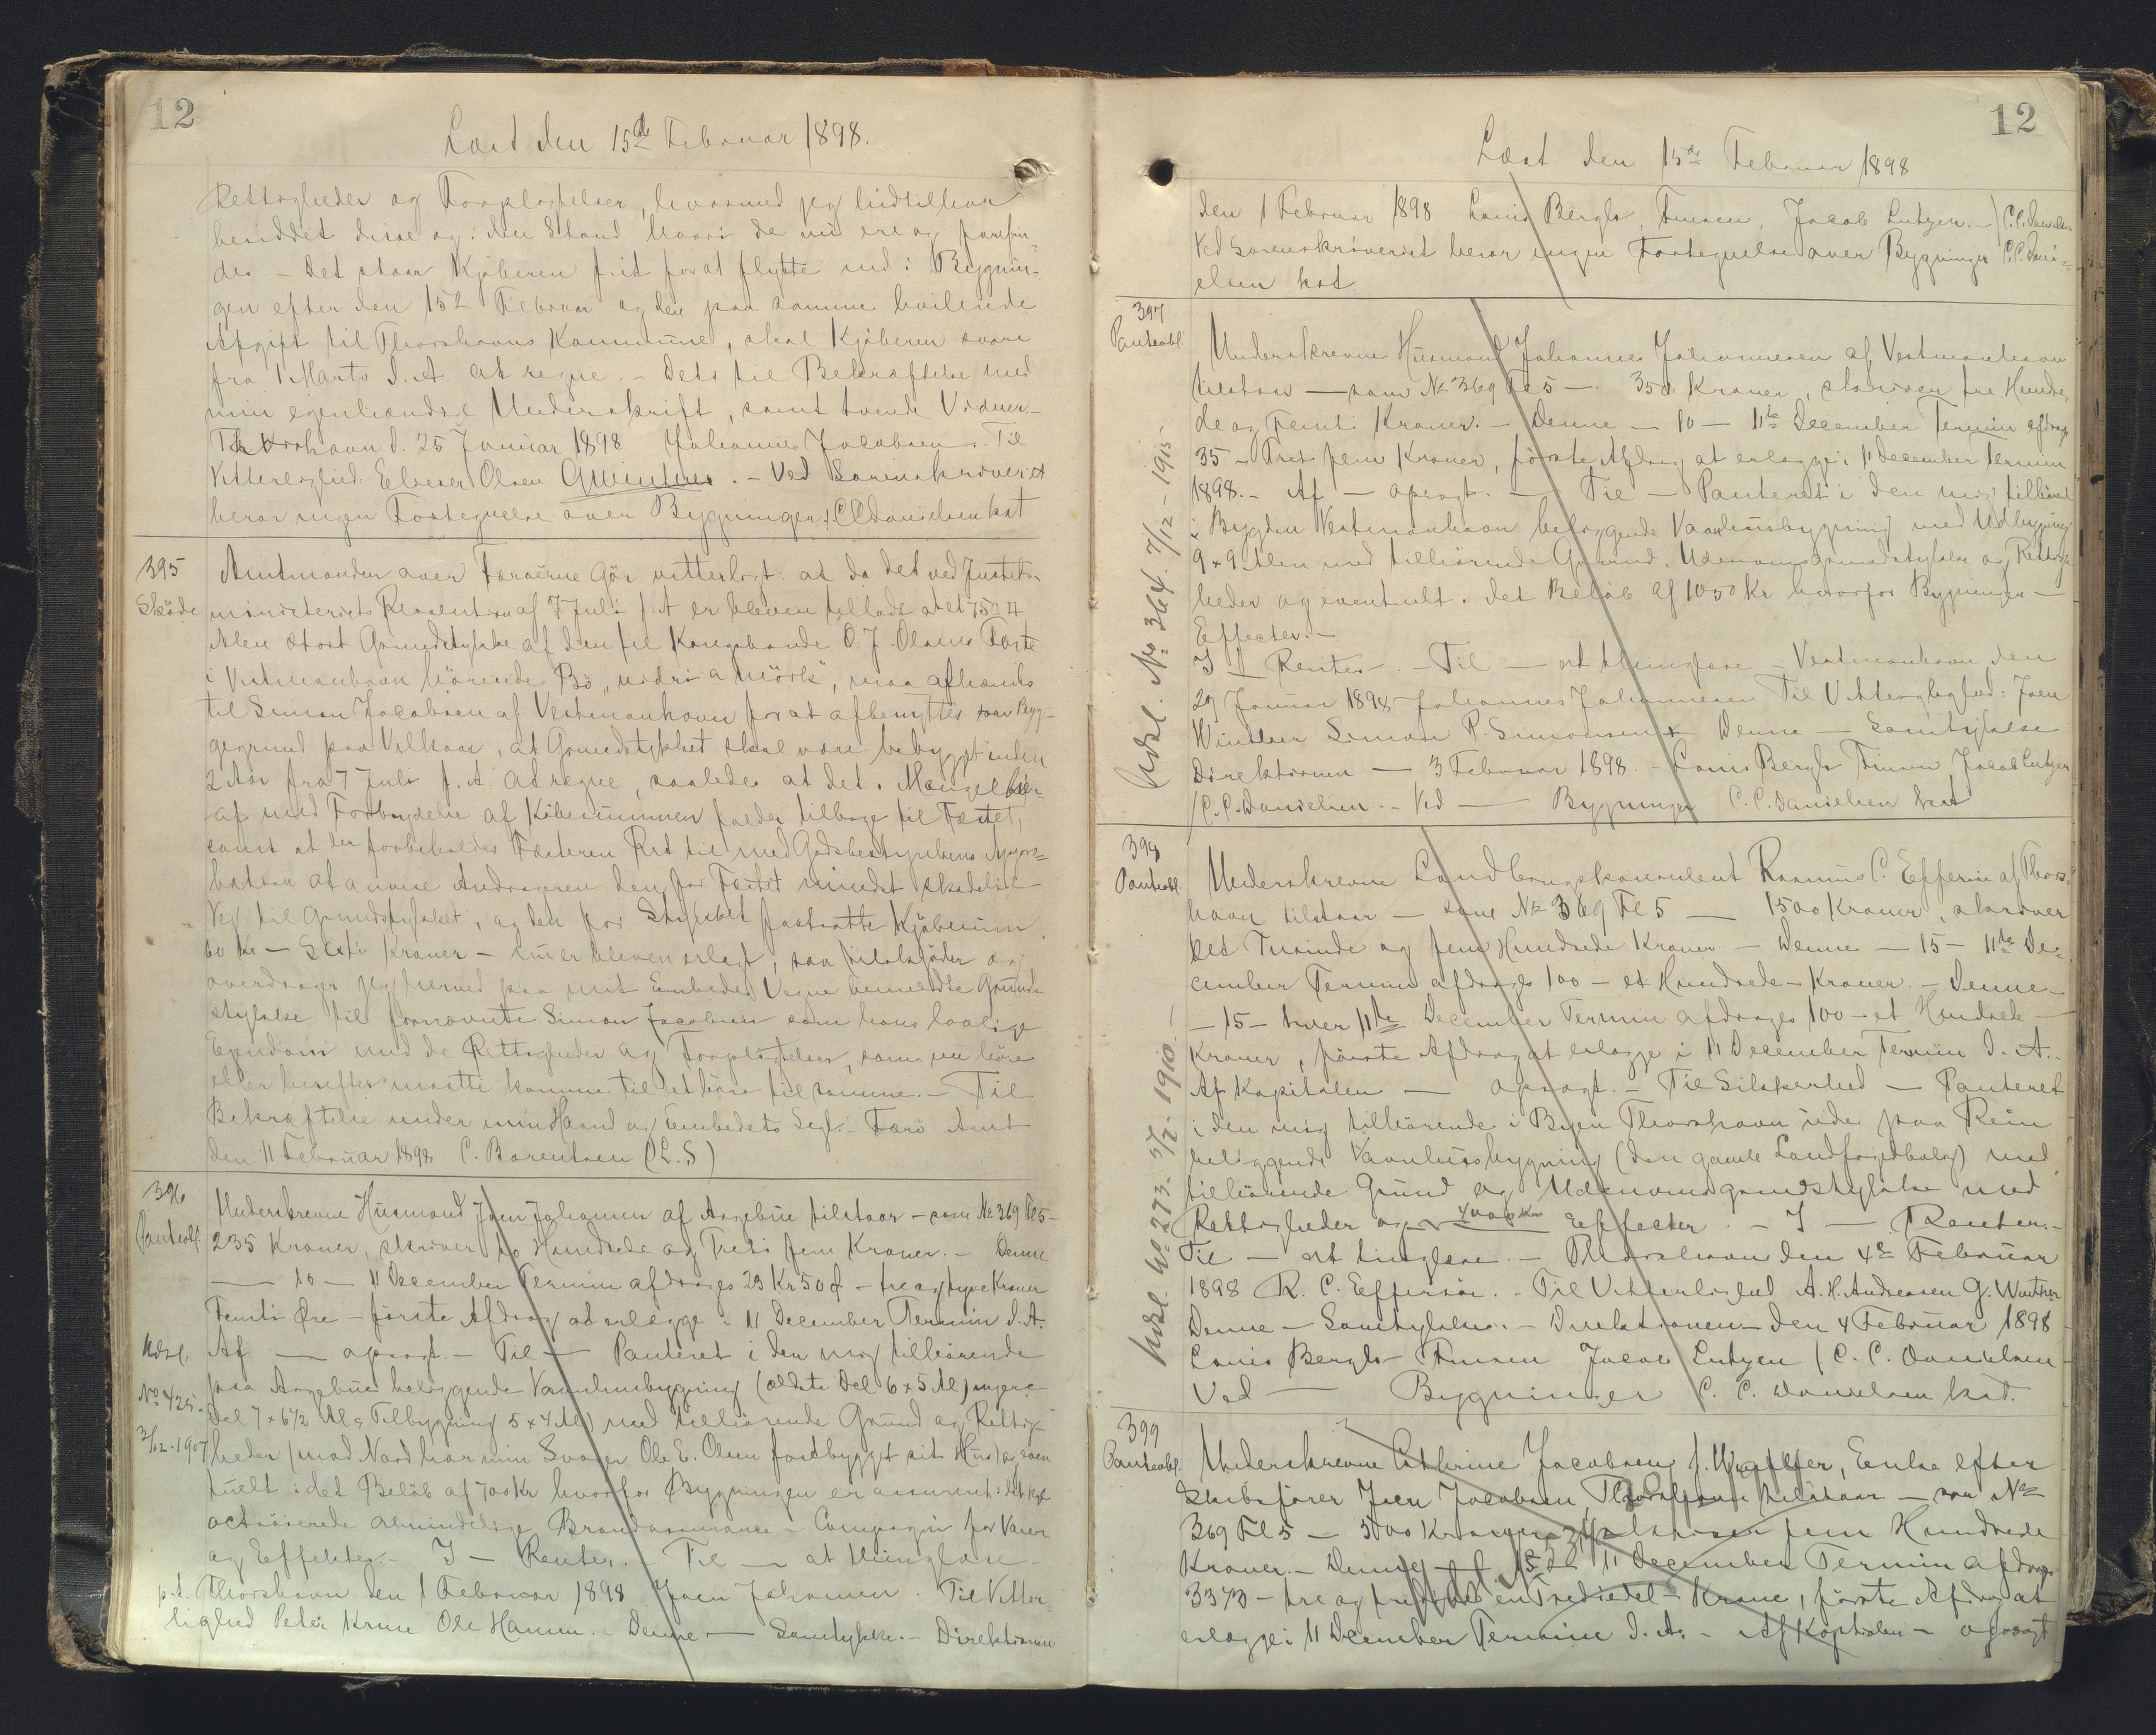 12
Læst den 15de Februar 1898.
Rettigheder og Forpligtelser, hvormed jeg hidtil har
besiddet disse og i den Stand hvori de nu ere og forefin-
des - Det staar Kjöberen frit for at flytte ind i Bygnin-
gen efter den 15de Februar og den paa samme hvilende
Afgift til Thorshavns Kommune, skal Kjöberen svare
fra 1 Marts d. A. at regne. - Dets til Bekræftelse med
min egenhændige Underskrift, samt tvende Vidner. -
Thorshavn d. 25 Januar 1898 Johannes Jacobsen - Til
Vitterlighed: Olsen GWinther. - Ved Sorenskriveriet
beror ingen Fortegnelse over Bygninger. CCDanielsen kst
395
Skøde
Amtmanden over Færøerne Gör vitterligt: at da det ved Justits-
ministeriets Resolution af 7 Juli f. A er bleven tilladt at et 750 □
Alen stort Grundstykke af den til Kongsbonde O. J. Olsens Fæste
i Vestmanhavn hörende Bö, "niðri á Mörk", maa afhændes
til Simon Jacobsen af Vestmanhavn for at afbenyttes som Byg-
gegrund paa Vilkaar, at Grundstykket skal være bebygget inden
2 Aar fra 7 Juli f. A. at regne, saaledes at det i Mangel her-
af med Fortabelse af Köbesummen falder tilbage til Fæstet,
samt at der forbeholdes Fæsteren Ret til med Godsbestyrelsens Appro-
bation at anvise Andrageren den for Fæstet mindst skadelige
Vej til Grundstykket, og den for Stykket fastsatte Kjöbesum
60 Kr - Sexti Kroner - nu er bleven erlagt, saa tilskjöder og
overdrager jeg hermed paa mit Embedes Vegne bemeldte Grund-
stykke til fornævnte Simon Jacobsen som hans lovlige
Ejendom med de Rettigheder og Forpligtelser, som nu höre
eller herefter maatte komme til at höre til samme. - Til
Bekræftelse under min Haand og Embedets Segl. - Færö Amt
den 11 Februar 1898 C. Bærentsen (L.S)
396
Panteobl.
Underskrevne Husmand Joen Johannesen af Argebue tilstaar - som № 369 Fl 5 -
235 Kroner, skriver to Hundrede og Treti fem Kroner. - Denne
— 10 — 11 December Termin afdrages 23 Kr 50 Ø - tre og tyve Kroner
Femti Øre - förste Afdrag at erlægge i 11 December Termin d. A.
Udsl.
Af — opsagt. - Til — Panteret i den mig tilhörende
№ 425.
paa Argebue beliggende Vaanhusbygning (ældste Del 6 x 5 Al) nyere
Del 7 x 6½ Al, Tilbygning 5 x 4 Al) med tilhörende Grund og Rettig-
3/12-1907
heder (mod Nord har min Svoger Ole E. Olsen fastbygget sit Hus) og even
tuelt i det Belöb af 700 Kr hvorfor Bygningen er assureret i det kgl
octroierede almindelige Brandassurance - Compagni for Varer
og Effekter. - I — Renter. - Til — at thinglæse -
p.t. Thorshavn den 1 Februar 1898 Joen Johannesen. Til Vitter-
lighed Peter Kruse Ole Hansen. - Denne — Samtykke. - Direktionen
12
Læst den 15de Februar 1898
den 1 Februar 1898 Louis Bergh, Finsen, Jacob Lutzen. - / C.C. Danielsen
Ved Sorenskriveriet beror ingen Fortegnelse over Bygninger C.C. Dani-
elsen kst
397
Panteobl.
Underskrevne Husmand Johannes Johannesen af Vestmanhavn
tilstaar — som № 369 Fl 5 — 350 Kroner, skriver tre Hundre-
de og Femti Kroner. - Denne — 10 — 11te December Termin afdrages
35 - Treti fem Kroner, förste Afdrag at erlægge i 11 December Termin
1898. - Af — opsagt. - Til — Panteret i den mig tilhörende
i Bygden Vestmanhavn beliggende Vaanhusbygning med Udbygning
9 x 9 Alen med tilhörende Grund. Udenomsgrundstykke og Rettig-
heder og eventuelt i det Belöb af 1050 Kr hvorfor Bygningen —
Effecter. -
I — Renter - Til — at thinglæse - Vestmanhavn den
29 Januar 1898 Johannes Johannesen Til Vitterlighed: Joen
Winther Simon P. Simonsen Denne — Samtykke
Direktionen — 3 Februar 1898. - Louis Bergh Finsen Jacob Lutzen
/ C.C. Danielsen. - Ved — Bygninger C.C. Danielsen kst
Udsl. № 364. 7/12 - 1915 -
398
Panteobl.
Underskrevne Landbrugskonsulent Rasmus C. Effersöe af Thors-
havn tilstaar — som № 369 Fl 5 — 1500 Kroner, skriver
Eet Tusinde og fem Hundrede Kroner - Denne — 15 — 11te De-
cember Termin afdrages 100 - et Hundrede - Kroner. - Denne -
- 15 - hver 11te December Termin afdrages 100 - et Hundrede
Kroner, förste Afdrag at erlægge i 11 December Termin d. A. -
Af Kapitalen — opsagt. - Til Sikkerhed — Panteret
i den mig tilhörende i Byen Thorshavn ude paa Rein
beliggende Vaanhusbygning (den gamle Landfogedbolig) med
tilhörende Grund og Udenomsgrundstykke med
Rettigheder og — 4000 Kr Effecter. - I — Renter. -
Til — at tinglæse. - Thorshavn den 4de Februar
1898 R. C. Effersöe. - Til Vitterlighed A. H. Andreasen G. Winther
Denne — Samtykke. - Direktionen - den 4 Februar 1898
Louis Bergh Finsen Jacob Lutzen / C. C. Danielsen
Ved — Bygninger C. C. Danielsen kst.
Udsl. № 273. 3/7 - 1910 -
399
Panteobl.
Underskrevne Cathrine Jacobsen f. Enke efter
Skibsförer Joen Jacobsen Thorshavn tilstaar — som №
369 Fl 5 — 500 Kroner skriver fem Hundrede
Kroner. - Denne — 15 11 December Termin afdrages
33⅓ - tre og en Trediedel - Krone, förste Afdrag at
erlægge i 11 December Termin d. A. - Af Kapitalen - opsagt